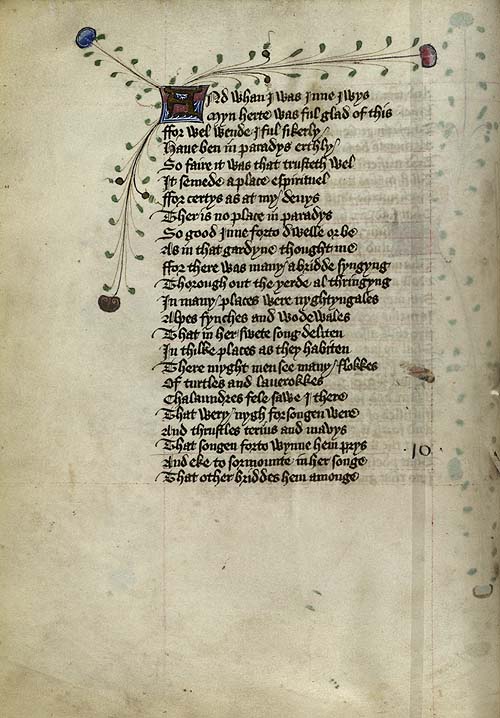 And whan I was Inne Iwys
Myn herte was ful glad of this
ffor wel wende I ful sikerly
Haue ben in paradys erthly
So faire it was that trusteth wel
It semede a place espirituel
ffor certys as at my deuys
Ther is no place in paradys
So good Inne forto dwelle or be
As in that gardyne thought me
ffor there was many a bridde syngyng
Thorough out the yerde al thringyng
In many places were nyghtyngales
Alpes fynches and wodewales
That in her swete song deliten
In thilke places as they habiten
There myght men see many flokkes
Of turtles and lauerokkes
Chalaundres fele sawe I there
That wery nygh forsongen were
And thrustles terins and mavys
That songen forto wynne hem prys
And eke to sormounte in her songe
That other briddes hem amonge
10